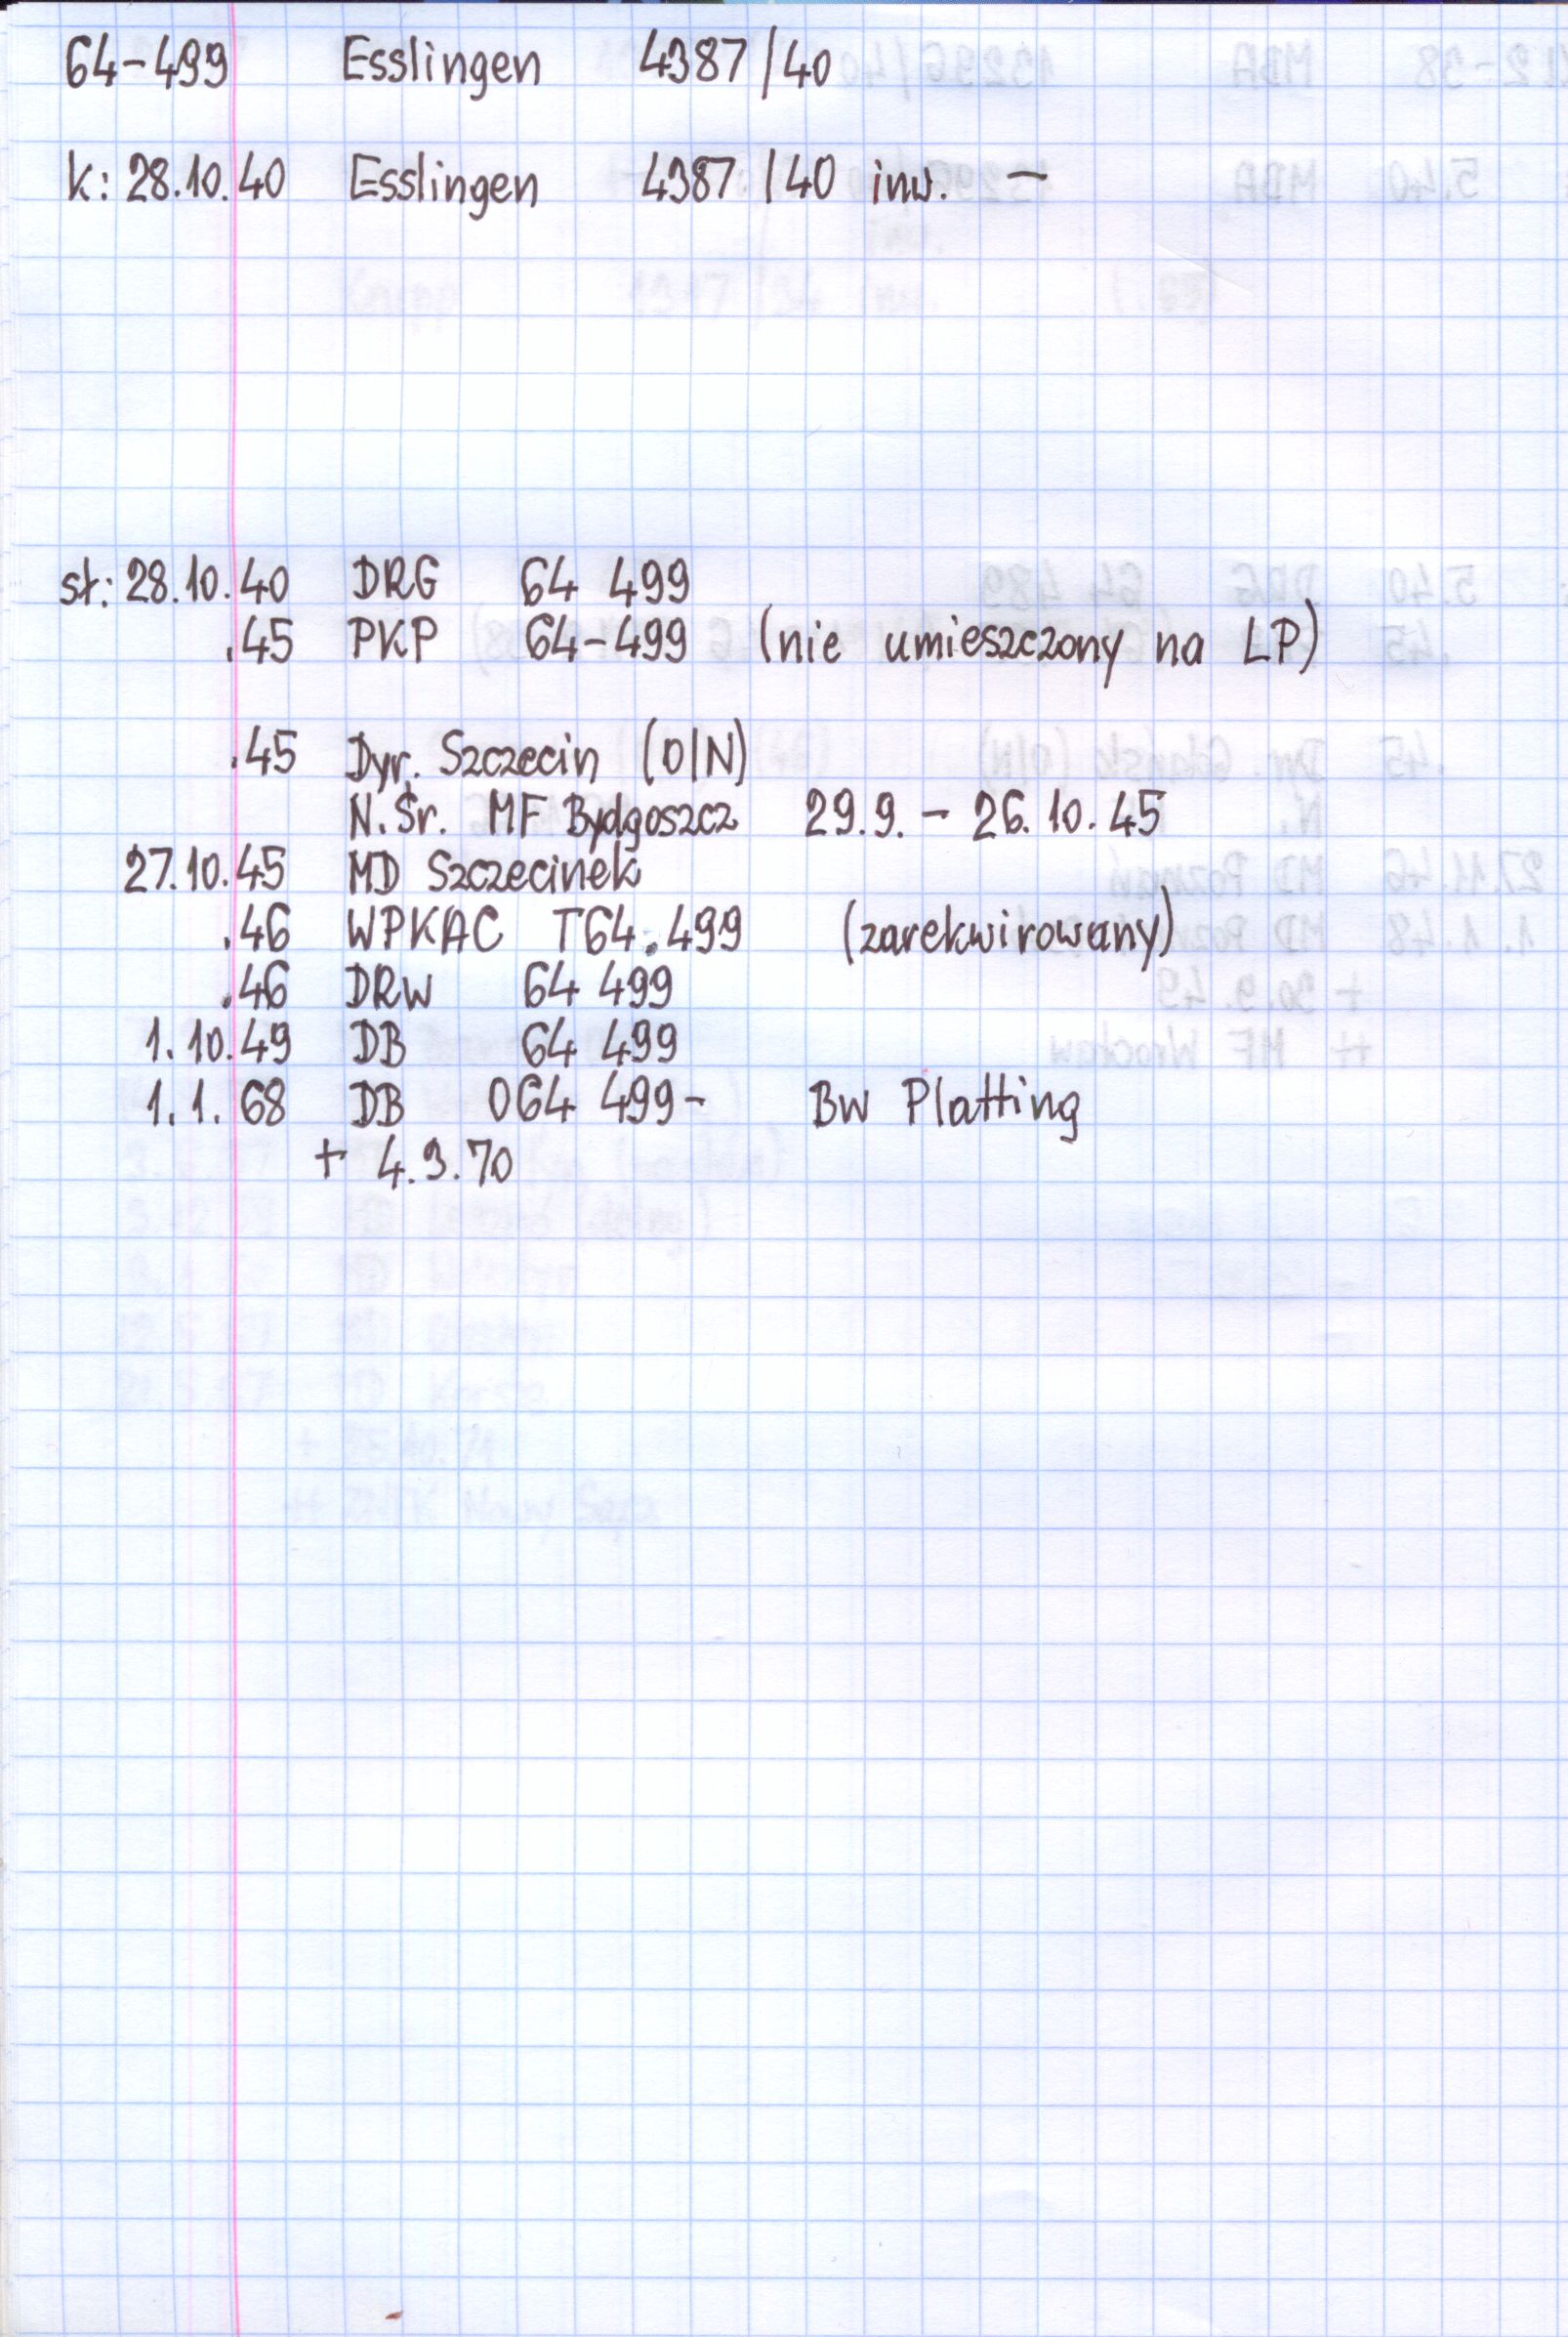 64-499 Esslingen 4387/40
k: 28.10.40 Esslingen 4387/40 inw. –
st: 28.10.40 DRG 64 499
.45 PKP 64-499 (nie umieszczony na LP)
.45 Dyr. Szczecin (O/N)
N.Śr. MF Bydgoszcz 29.9. – 26.10.45
27.10.45 MD Szczecinek
.46 WPKAC T64.499 (zarekwirowany)
.46 DRW 64 499
1.10.49 DB 64 499
1.1.68 DB 064 499- BW Plattling
+ 4.3.70